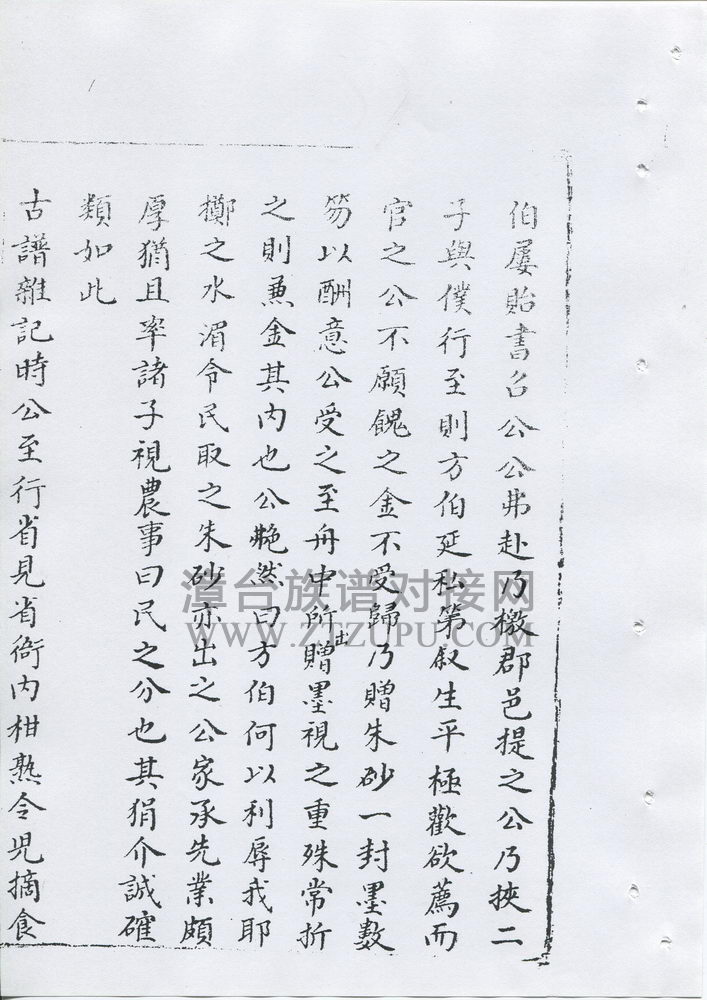 伯屢貽書召公公弗赴乃檄郡邑提之公乃挾二
子與僕行至則方伯延私第叙生平極歡欲薦而
官之公不願餽之金不受歸乃贈朱砂一封墨數
笏以酬意公受之至舟中所出贈墨視之重殊常折
之則兼金其内也公艴然曰方伯何以利辱我耶
擲之水湄令民取之朱砂亦出之公家承先業頗
厚猶且率諸子視農事曰民之分也其狷介誠確
類如此
古譜雜記時公至行省見省衙内柑熟令児摘食
漳台族谱对接网
WWW.ZTZUPU.COM